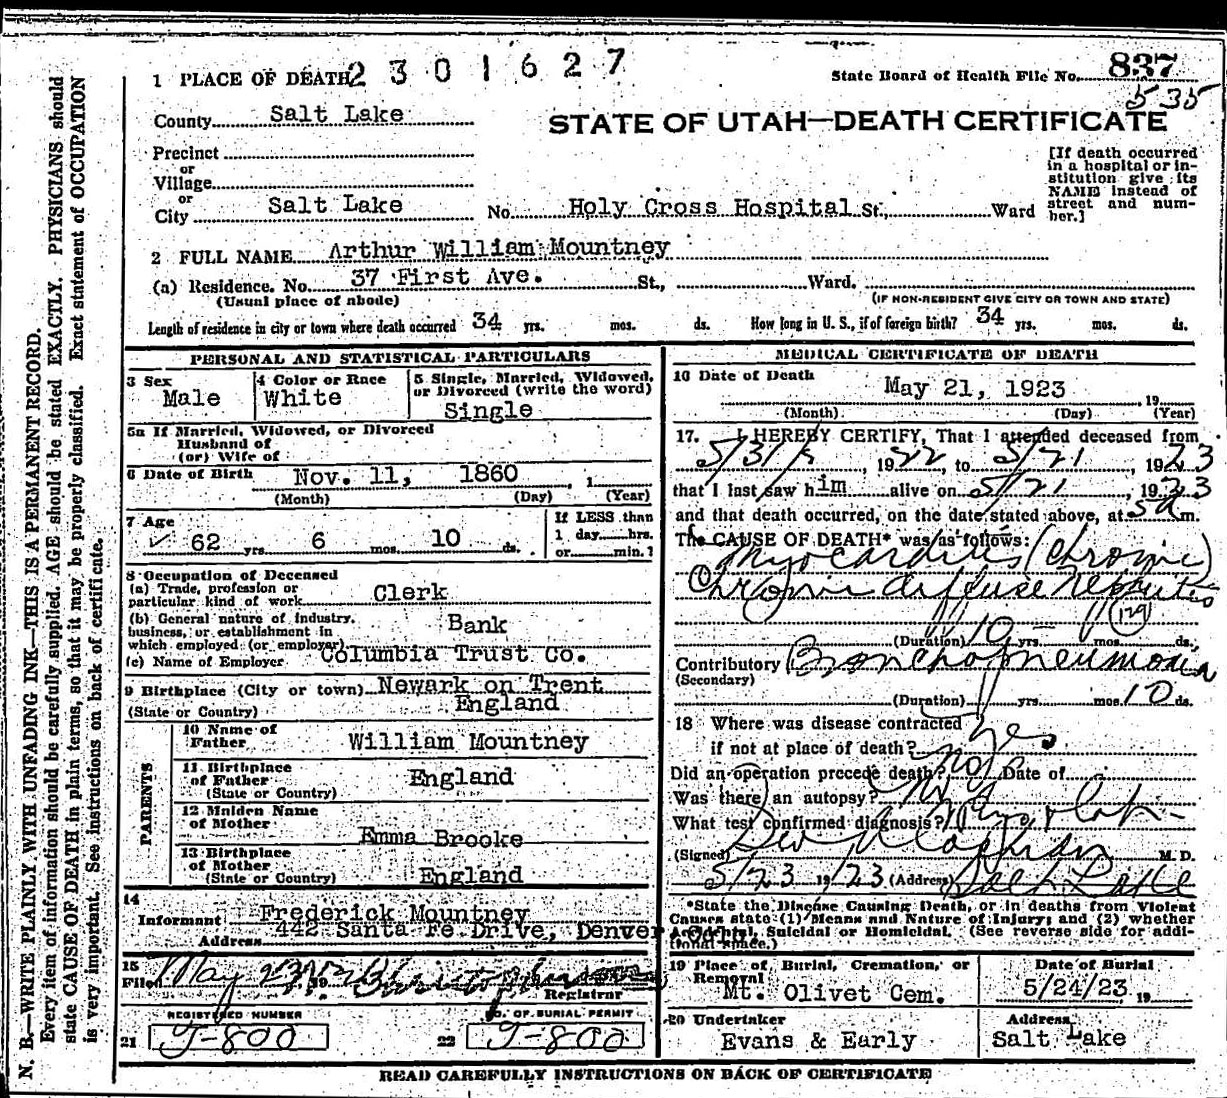 1 PLACE OF DEATH 2 3 0 1 6 2 7
State Board of Health File No. 837
535
County Salt Lake
STATE OF UTAH—DEATH CERTIFICATE
Precinct
or
Village
or
City Salt Lake No. Holy Cross Hospital St., Ward
[If death occurred
in a hospital or in-
stitution give its
NAME instead of
street and num-
ber.]
2 FULL NAME Arthur William Mountney
(a) Residence. No. 37 First Ave. St., Ward.
(Usual place of abode) (IF NON-RESIDENT GIVE CITY OR TOWN AND STATE)
Length of residence in city or town where death occurred 34 yrs. mos. ds. How long in U. S., if of foreign birth? 34 yrs. mos. ds.
PERSONAL AND STATISTICAL PARTICULARS
3 Sex
Male
4 Color or Race
White
5 Single, Married, Widowed,
or Divorced (write the word)
Single
5a If Married, Widowed, or Divorced
Husband of
(or) Wife of
6 Date of Birth Nov. 11, 1860
(Month) (Day) (Year)
7 Age
62 yrs. 6 mos. 10 ds.
If LESS than
1 day hrs.
or min.?
8 Occupation of Deceased
(a) Trade, profession or
particular kind of work Clerk
(b) General nature of industry,
business, or establishment in
which employed (or employer) Bank
(c) Name of Employer Columbia Trust Co.
9 Birthplace (City or town) Newark on Trent
(State or Country) England
PARENTS
10 Name of
Father William Mountney
11 Birthplace
of Father England
(State or Country)
12 Maiden Name
of Mother
Emma Brooke
13 Birthplace
of Mother
(State or Country) England
14
Informant Frederick Mountney
Address 442 Santa Fe Drive, Denver, Colo.
15
Filed May 23, 19
Registrar
REGISTERED NUMBER
21 J-800
NO. OF BURIAL PERMIT
22 J-800
MEDICAL CERTIFICATE OF DEATH
16 Date of Death May 21, 1923 19
(Month) (Day) (Year)
17. I HEREBY CERTIFY, That I attended deceased from
5/31, 1922, to 5/21, 1923
that I last saw him alive on 5/21, 1923
and that death occurred, on the date stated above, at 5 a m.
The CAUSE OF DEATH* was as follows:
Myocarditis (chronic)
Chronic diffuse nephritis
129
(Duration) 10 yrs. mos. ds.
Contributory Bronchopneumonia
(Secondary)
(Duration) yrs. mos. 10 ds.
18 Where was disease contracted
if not at place of death? yes
Did an operation precede death? no Date of
Was there an autopsy? no
What test confirmed diagnosis?
(Signed) M. D.
5/23 19 23 (Address) Salt Lake
*State the Disease Causing Death, or in deaths from Violent
Causes state (1) Means and Nature of Injury; and (2) whether
Accidental, Suicidal or Homicidal. (See reverse side for addi-
tional space.)
19 Place of Burial, Cremation, or
Removal
Mt. Olivet Cem.
Date of Burial
5/24/23 19
20 Undertaker
Evans & Early
Address
Salt Lake
READ CAREFULLY INSTRUCTIONS ON BACK OF CERTIFICATE
N. B.—WRITE PLAINLY WITH UNFADING INK—THIS IS A PERMANENT RECORD.
Every item of information should be carefully supplied. AGE should be stated EXACTLY. PHYSICIANS should
state CAUSE OF DEATH in plain terms, so that it may be properly classified. Exact statement of OCCUPATION
is very important. See instructions on back of certificate.